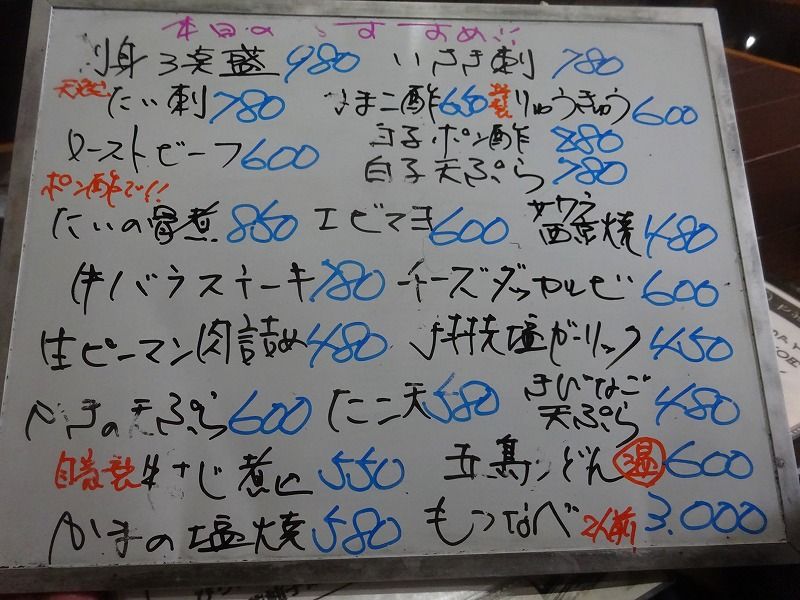 本日のおすすめ!!
刺身3点盛 980 いさき刺 780
天然 たい刺 780 なまこ酢 650 りゅうきゅう 600
ローストビーフ 600 白子ポン酢 880
ポン酢で!! 白子天ぷら 780
たいの骨煮 850 エビマヨ 600 サワラ西京焼 480
牛バラステーキ 780 チーズダッカルビ 600
生ピーマン肉詰め 480 手羽先塩ガーリック 450
かきの天ぷら 600 たこ天 580 きびなご天ぷら 480
自家製 牛すじ煮込 550 五島うどん 温 600
かまの塩焼 580 もつなべ 2人前 3.000